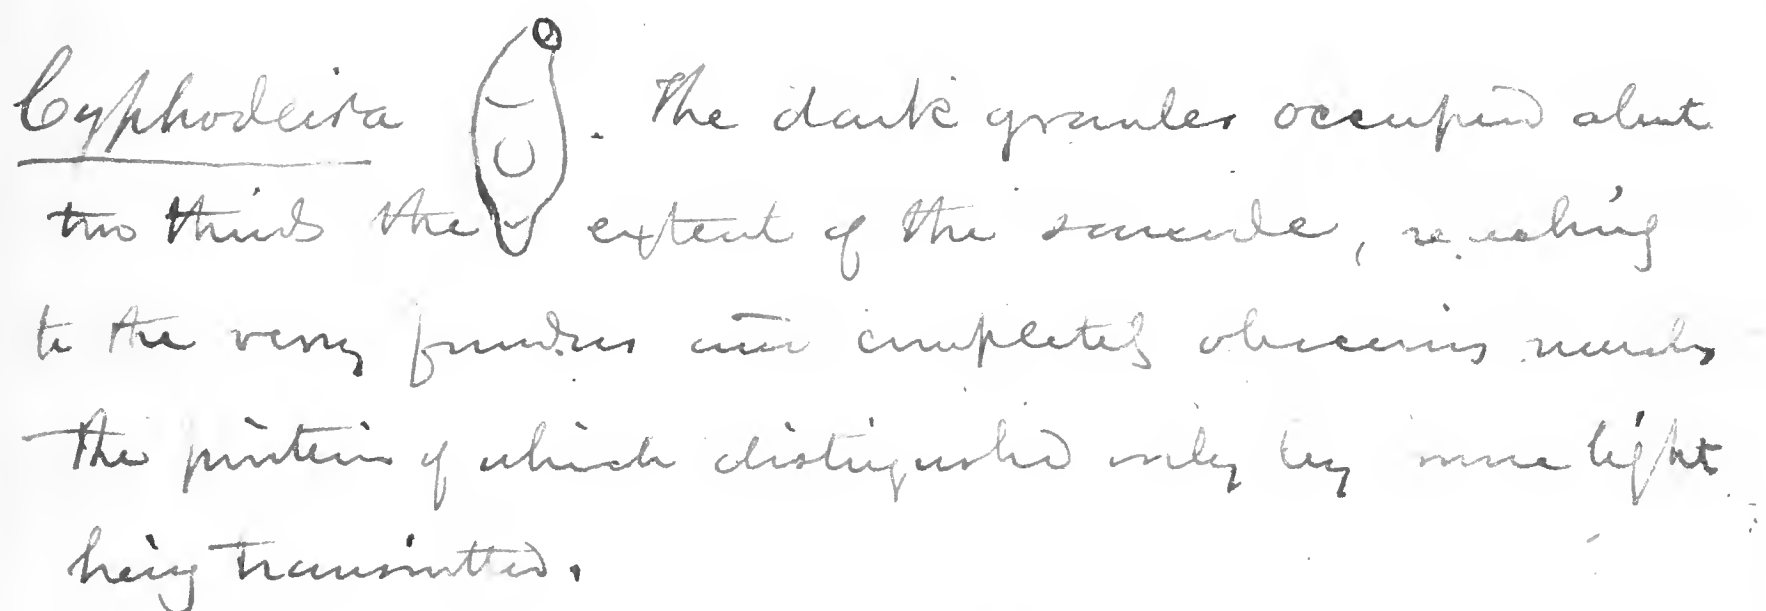 Cyphoderia . The dark granules occupied about
two thirds the extent of the sarcode, reaching
to the very fundus and completely obscuring nucleus
the position of which distinguished only by more light
being transmitted.